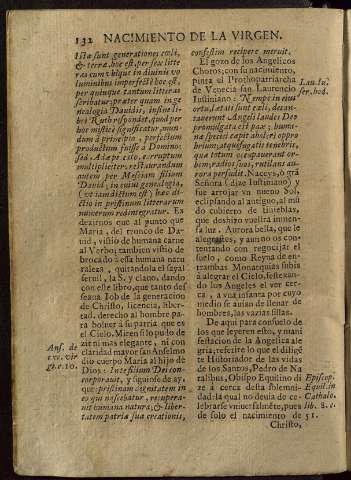 132 NACIMIENTO DE LA VIRGEN.
Istæ sunt generationes cœli,
& terræ, hoc est, per sex litte
ras cum ubique in divinis vo
luminibus imperfectè hoc est,
per quinque tantum litteras
scribatur; præter quam in ge
nealogia Davidis, in fine li-
bri Ruth respondet, quod per
hoc misticè significatur, mun-
dum à principio, perfectum
productum fuisse à Domino:
sed Adæ peccato, corruptum
multipliciter; restaurandum
autem per Messiam filium
David; in cuius genealogia,
(ut iam dictum est) hæc di-
ctio in pristinum litterarum
numerum redintegratur. Es
dezirnos que al punto que
Maria, del tronco de Da-
vid, vistió de humana carne
al Verbo; tambien vistió de
brocado à essa humana natu
raleza, quitandola el sayal
servil, la S. y clavo, dando
con este libro, que tanto des
seava Iob de la generacion
de Christo, licencia, liber-
tad, derecho al hombre pa-
ra bolver à su patria que es
el Cielo. Miren si lo pudo de
zir ni mas elegante, ni con
claridad mayor san Anselmo
dió cuerpo Maria al hijo de
Dios: Inte filium Dei con-
corporavit, y siguese de ay,
que: pristinam dignitatem in
eo qui nascebatur, recupera-
vit humana natura, & liber-
tatem patria sua creationis,
Ans. de
exc. vir
g. c. 10.
confestim recipere meruit.
El gozo de los Angelicos
Choros; con su nacimiento,
pinta el Prothopatriarcha
de Venecia san Laurencio
Iustiniano: Nempe in eius
ortu, lætati sunt cœli, decan-
taverunt Angeli laudes Deo
promulgata est pax; huma-
næ speciei capit abderi oppro
brium; atque fugatis tenebris,
quæ totum occupaverant or-
bem, radios suos, rutilans au-
rora perfudit.
Señora
y fue
arrojar su nuevo Sol,
eclipsando al antiguo, al mũ
do cubierto de tinieblas,
que deshizo vuestra inmen
sa luz. Aurora bella, que le
alegrastes, y aun no os con-
tentando con regocijar el
suelo, como Reyna de en-
trambas Monarquias subis
à alegrar el Cielo, festexan-
do los Angeles el ver cer-
ca, à una infanta por cuyo
medio se avian de llenar de
hombres, las vazias sillas.
De aqui para consuelo de
los que leyeren esto, y mani
festacion de la Angelica ale
gria; refiero lo que el dilige
te Historiador de las vidas
de los Santos, Pedro de Na
talibus, Obispo Equilino di
ze à cerca desta solemni-
dad: la qual no devia de ce-
lebrarse universalmẽte, pues
de solo el nacimiento de
Christo,
Lau. Iu.
ser. hod.
Episcop.
Equil. in
Cathalo.
lib. 8. c.
51.